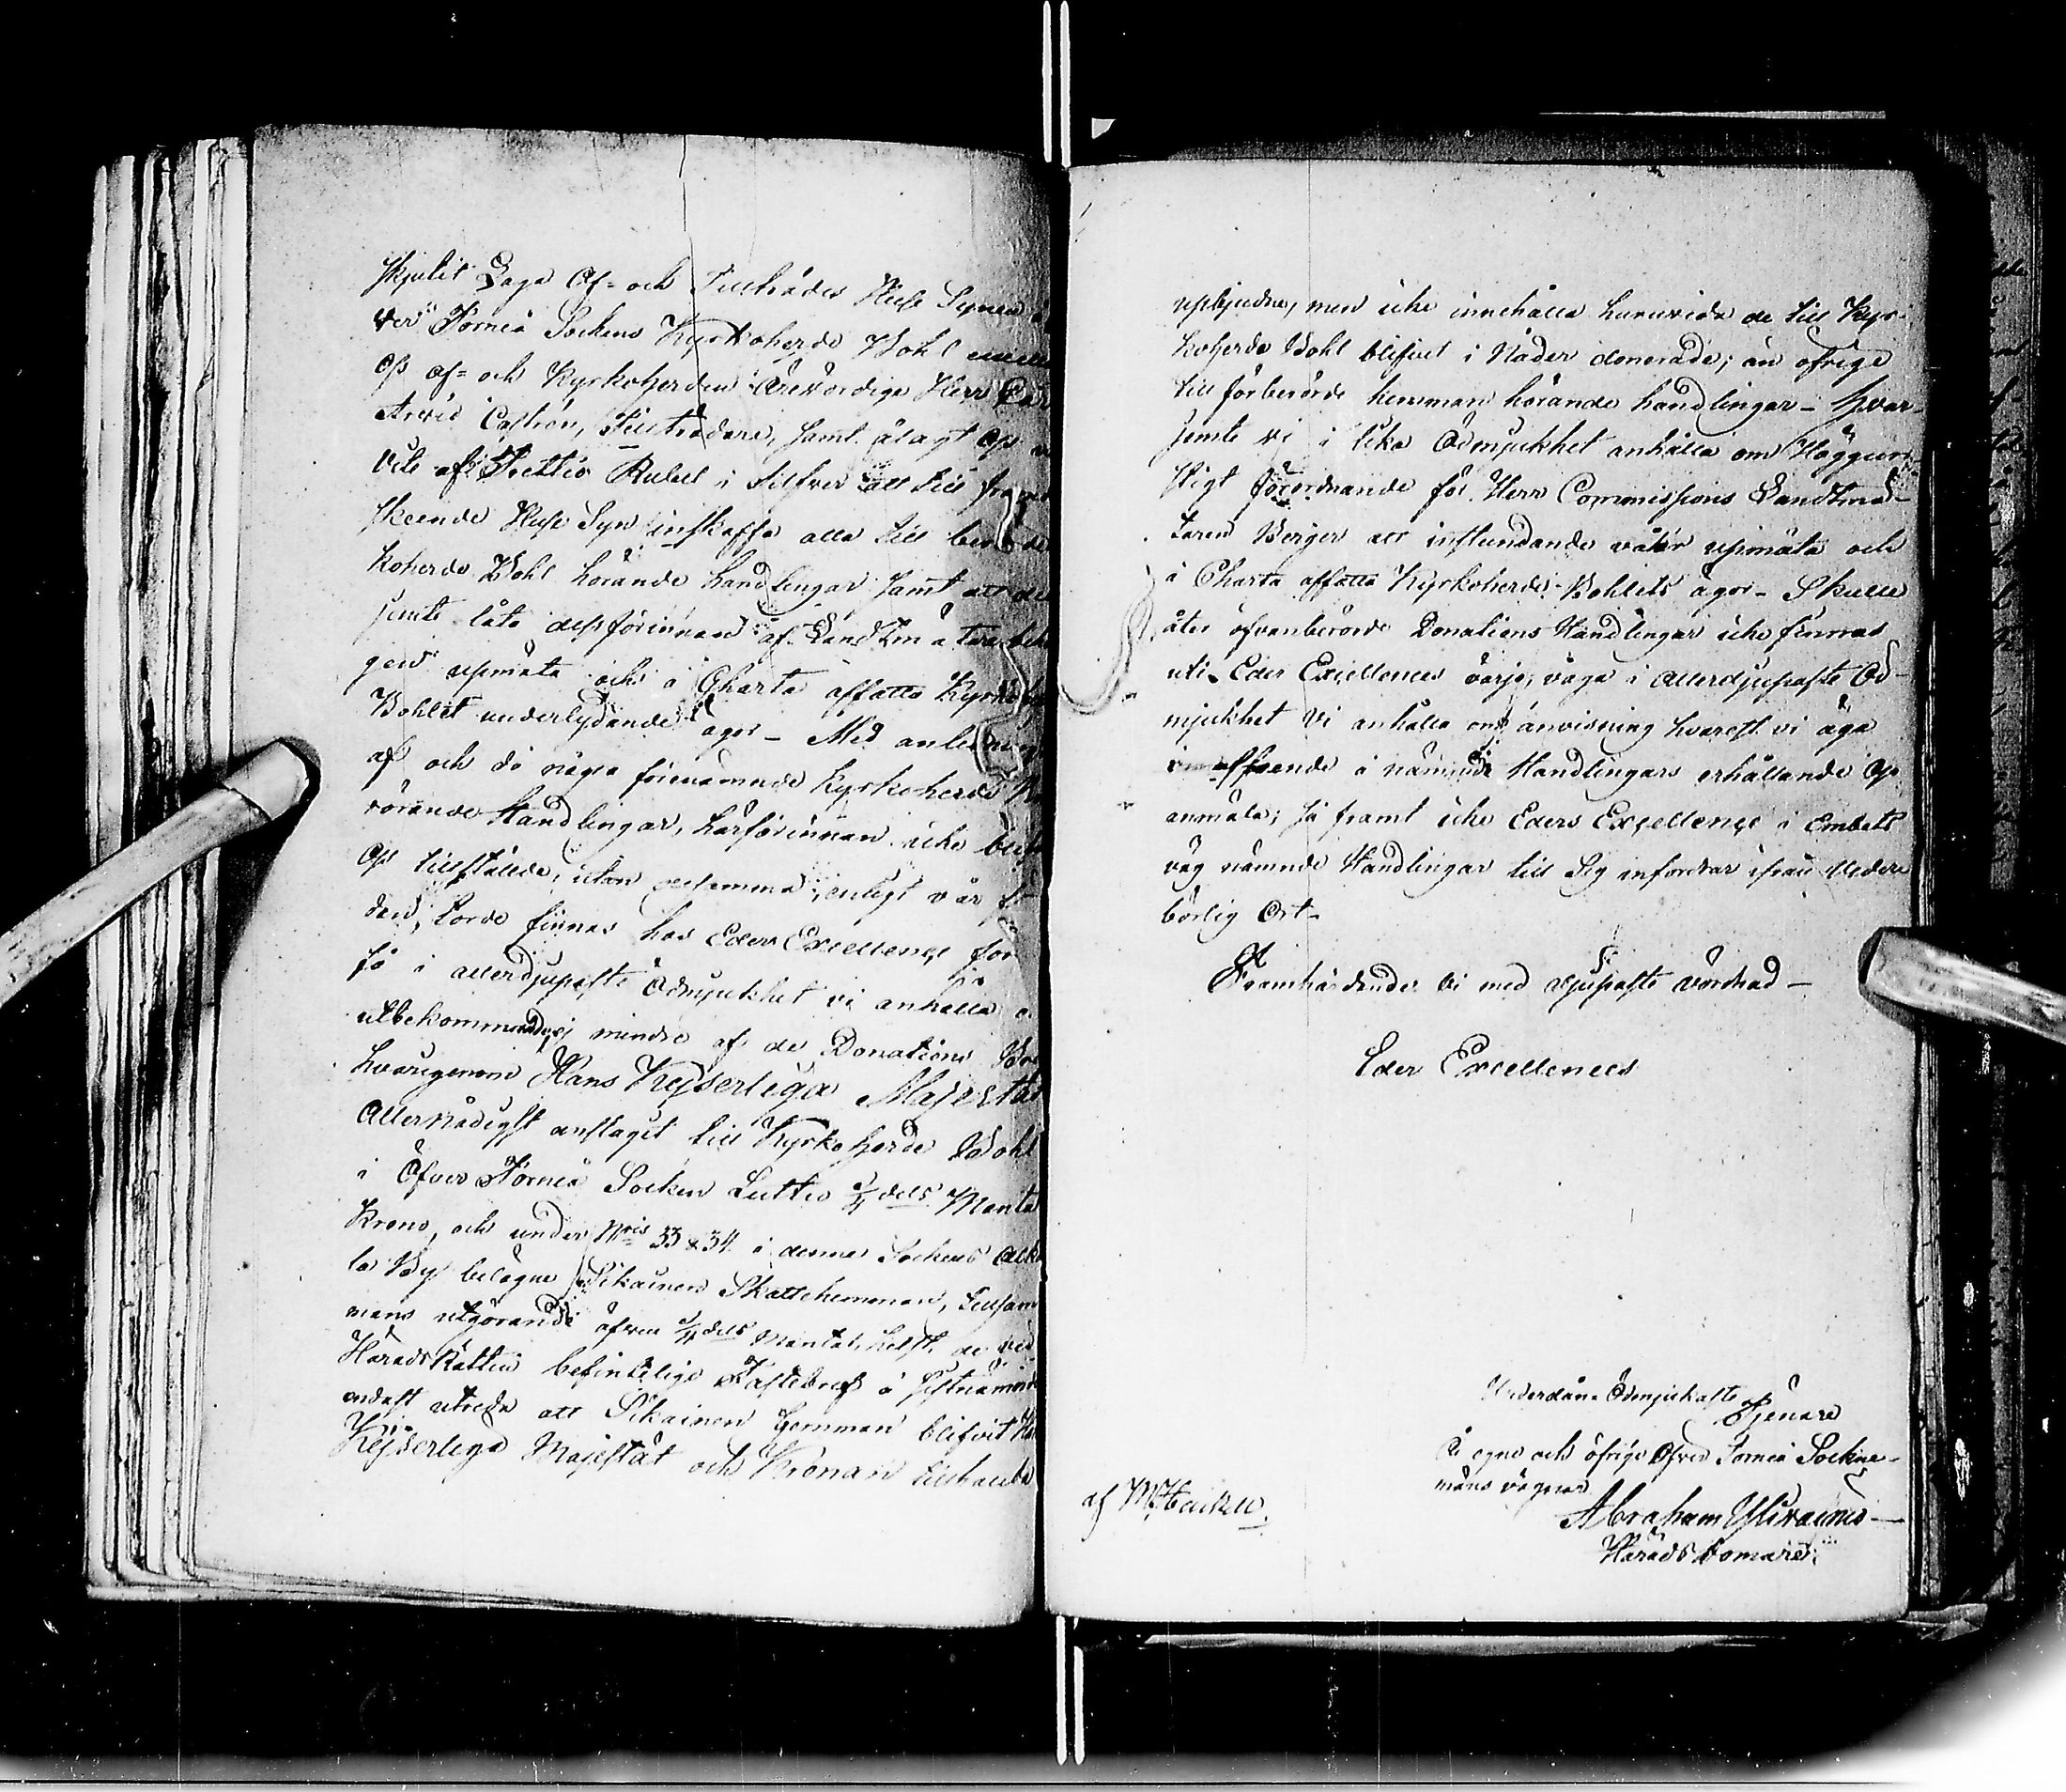 skjutit Laga Af- och Tillträdes Huse Synen å
ver Torneå Sockens Kyrkoherde Bohl emellan
Oss af- och Kyrkoherden Ärevördige Herr
Arvid Castrén, Tillträdare, samt ålagt Oss
vite af Trettio Rubel i Silfver att till fram
skeende Huse Syn inskaffa alla till berörde
koherde Bohl hörande handlingar samt
jemte låta dessförinnan af Landtmätare
gen upmäta och å Charta affatta Kyrkoher
Bohlet underlydande ägor - Med anledning
af och då några förenämnde Kyrkoherde
rörande Handlingar, härförinnan icke blif
Oss tillstälde, utan desamma, enligt vår
dan, torde finnas hos Eders Excellence för
få i allerdjupaste Ödmjukhet vi anhålla
utbekommande, ej mindre af de Donations
hvarigenom Hans Kejserliga Majestät
Allernådigst anslagit till Kyrkoherde Bohl
i Öfver Torneå Socken Luttio dels Manta
Krono, och under Nris 33 & 34 i denna Sockens Alk
la By belägne Sikainen Skattehemman, tillsam
mans utgörande äfven dels Mantal, helst de vid
Härads Rätten befintelige Fastebref å sistnämnde
endast utreda att Sikainen hemman blifvit
Kejserliga Majestät och Kronan tillhanda
upbjudne, men icke innehålla huruvida de till Kyr-
koherde Bohl blifvit i Nåder donerade; än öfrige
till förberörde hemman hörande handlingar - Hvar-
jemte vi i lika Ödmjukhet anhålla om Höggun-
stigt förordnande för Herr Commissions Landtmä-
taren Berger att instundande vår upmäta och
å Charta affatta Kyrkoherde-Bohlets ägor - Skulle
åter öfvanberörde Donations Handlingar icke finnas
uti Eders Excellences värjo, våga i allerdjupaste Öd-
mjukhet vi anhålla om anvisning hvarest vi äga
i afseende å nämnde Handlingars erhållande Oss
anmäla; så framt icke Eders Excellence i Embets
väg nämnde Handlingar till Sig infordrar ifrån Veder
börlig Ort -
Framhärdande vi med djupaste vördnad -
Eders Excellences
Underdån-Ödmjukaste
Tjenare
Å egne och öfrige Öfver Torneå Sockne-
mäns vägnar
Abraham
Härads domare
af